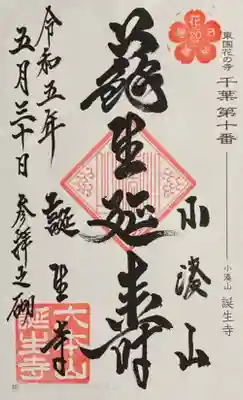 東国花の寺
千葉第十番
小湊山 誕生寺
小湊山
蘓生延寿
誕生寺
令和五年
五月三十日
参拝之砌
大本山
誕生寺